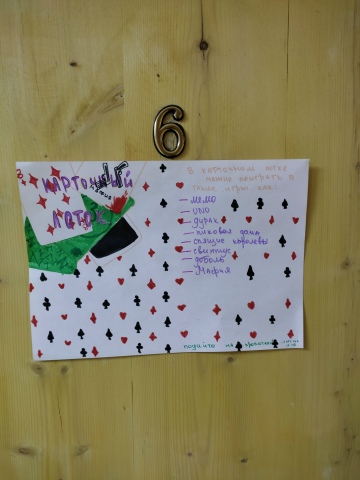 6
КАРТОЧНЫЙ
ЛОТОК
В карточном лотке
можно поиграть в
такие игры, как:
— мемо
— UNO
— дурак
— пиковая дама
— спящие королевы
— свинтус
— доббль
— Мафия